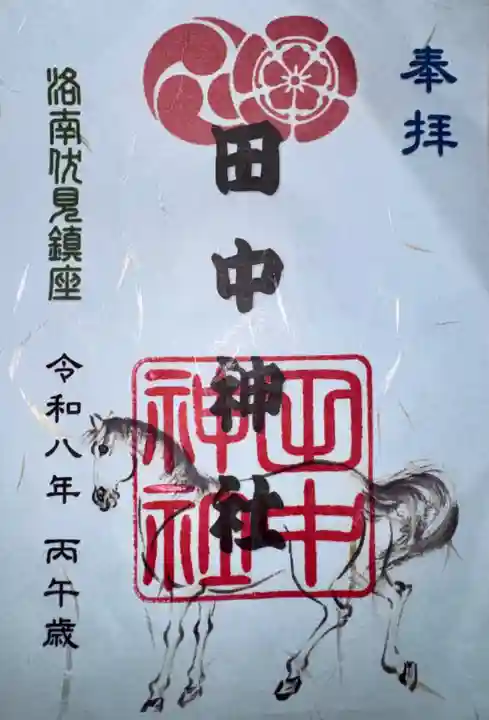 奉拝
田中神社
田中
神社
洛南伏見鎮座
令和八年 丙午歳